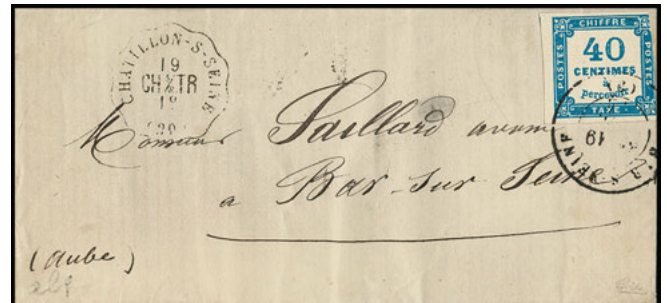 CHATILLON-S-SEINE
19
CH TR
CHIFFRE
POSTES
40
CENTIMES
à
percevoir
POSTES
TAXE
19
Monsieur Paillard
a Bar-sur Seine
(Aube)